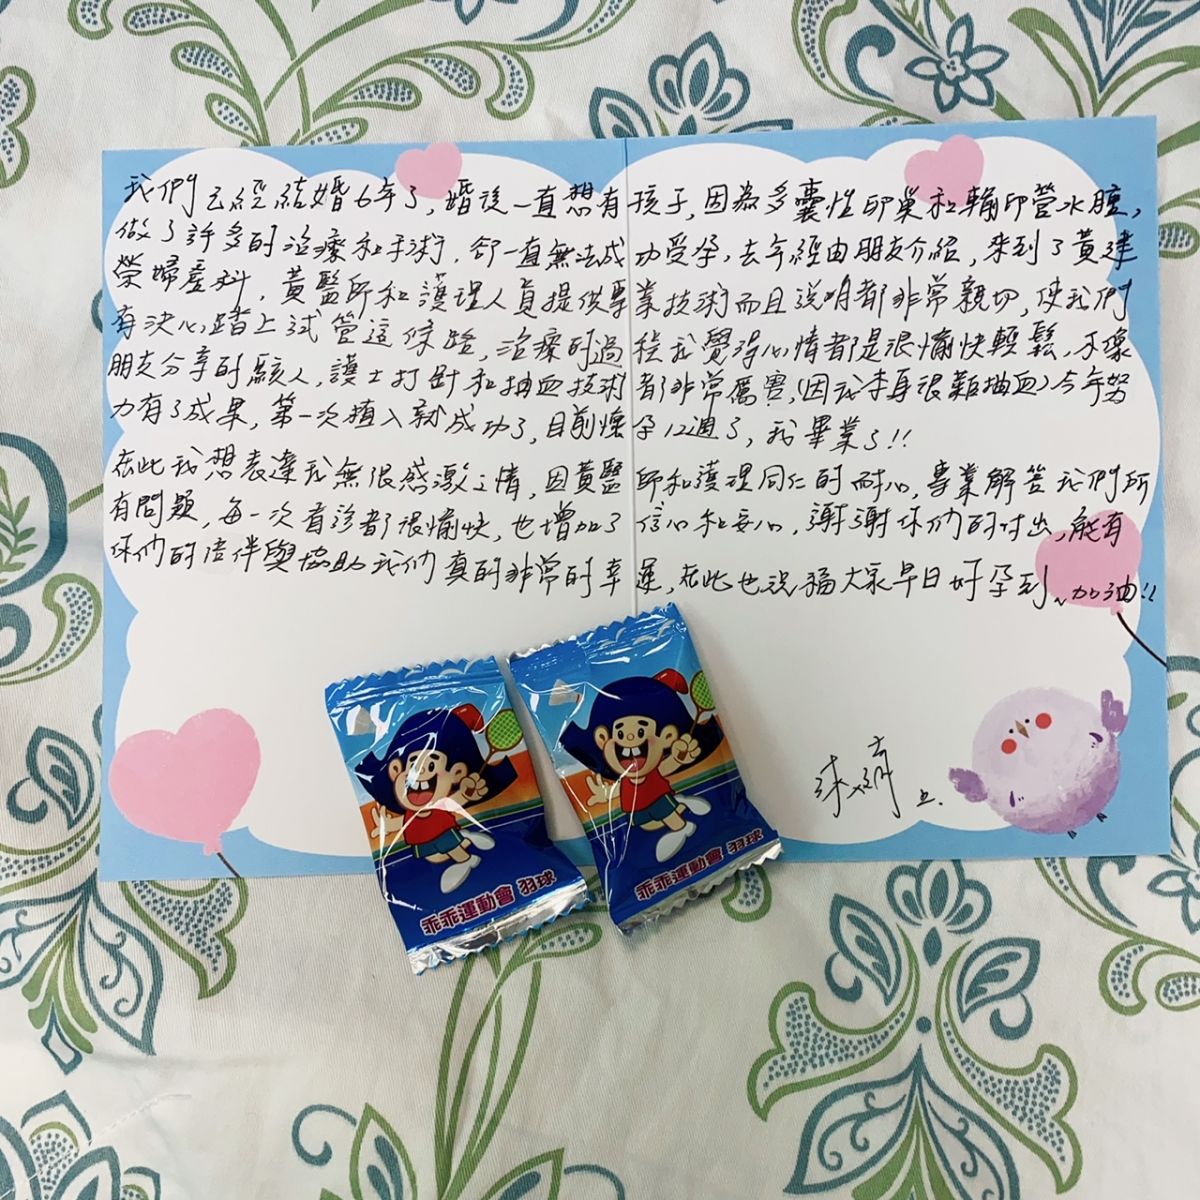 我們已經結婚6年了,婚後一直想有孩子,因為多囊性卵巢和輸卵管水腫,
做了許多的治療和手術,卻一直無法成功受孕,去年經由朋友介紹,來到了黃建
榮婦產科,黃醫師和護理人員提供專業技術而且說明都非常親切,使我們
有決心踏上試管這條路,治療的過程我覺得心情都是很愉快輕鬆,不像
朋友分享的駭人,護士打針和抽血技術都非常厲害,(因我本身很難抽血)今年努
力有了成果,第一次植入就成功了,目前懷孕12週了,我畢業了!!
在此我想表達我無限感激之情,因黃醫師和護理同仁的耐心,專業解答我們所
有問題,每一次看診都很愉快,也增加了信心和安心,謝謝你們的付出,能有
你們的陪伴與協助我們真的非常的幸運,在此也祝福大家早日好孕到~加油!!
乖乖運動會 羽球
乖乖運動會 羽球